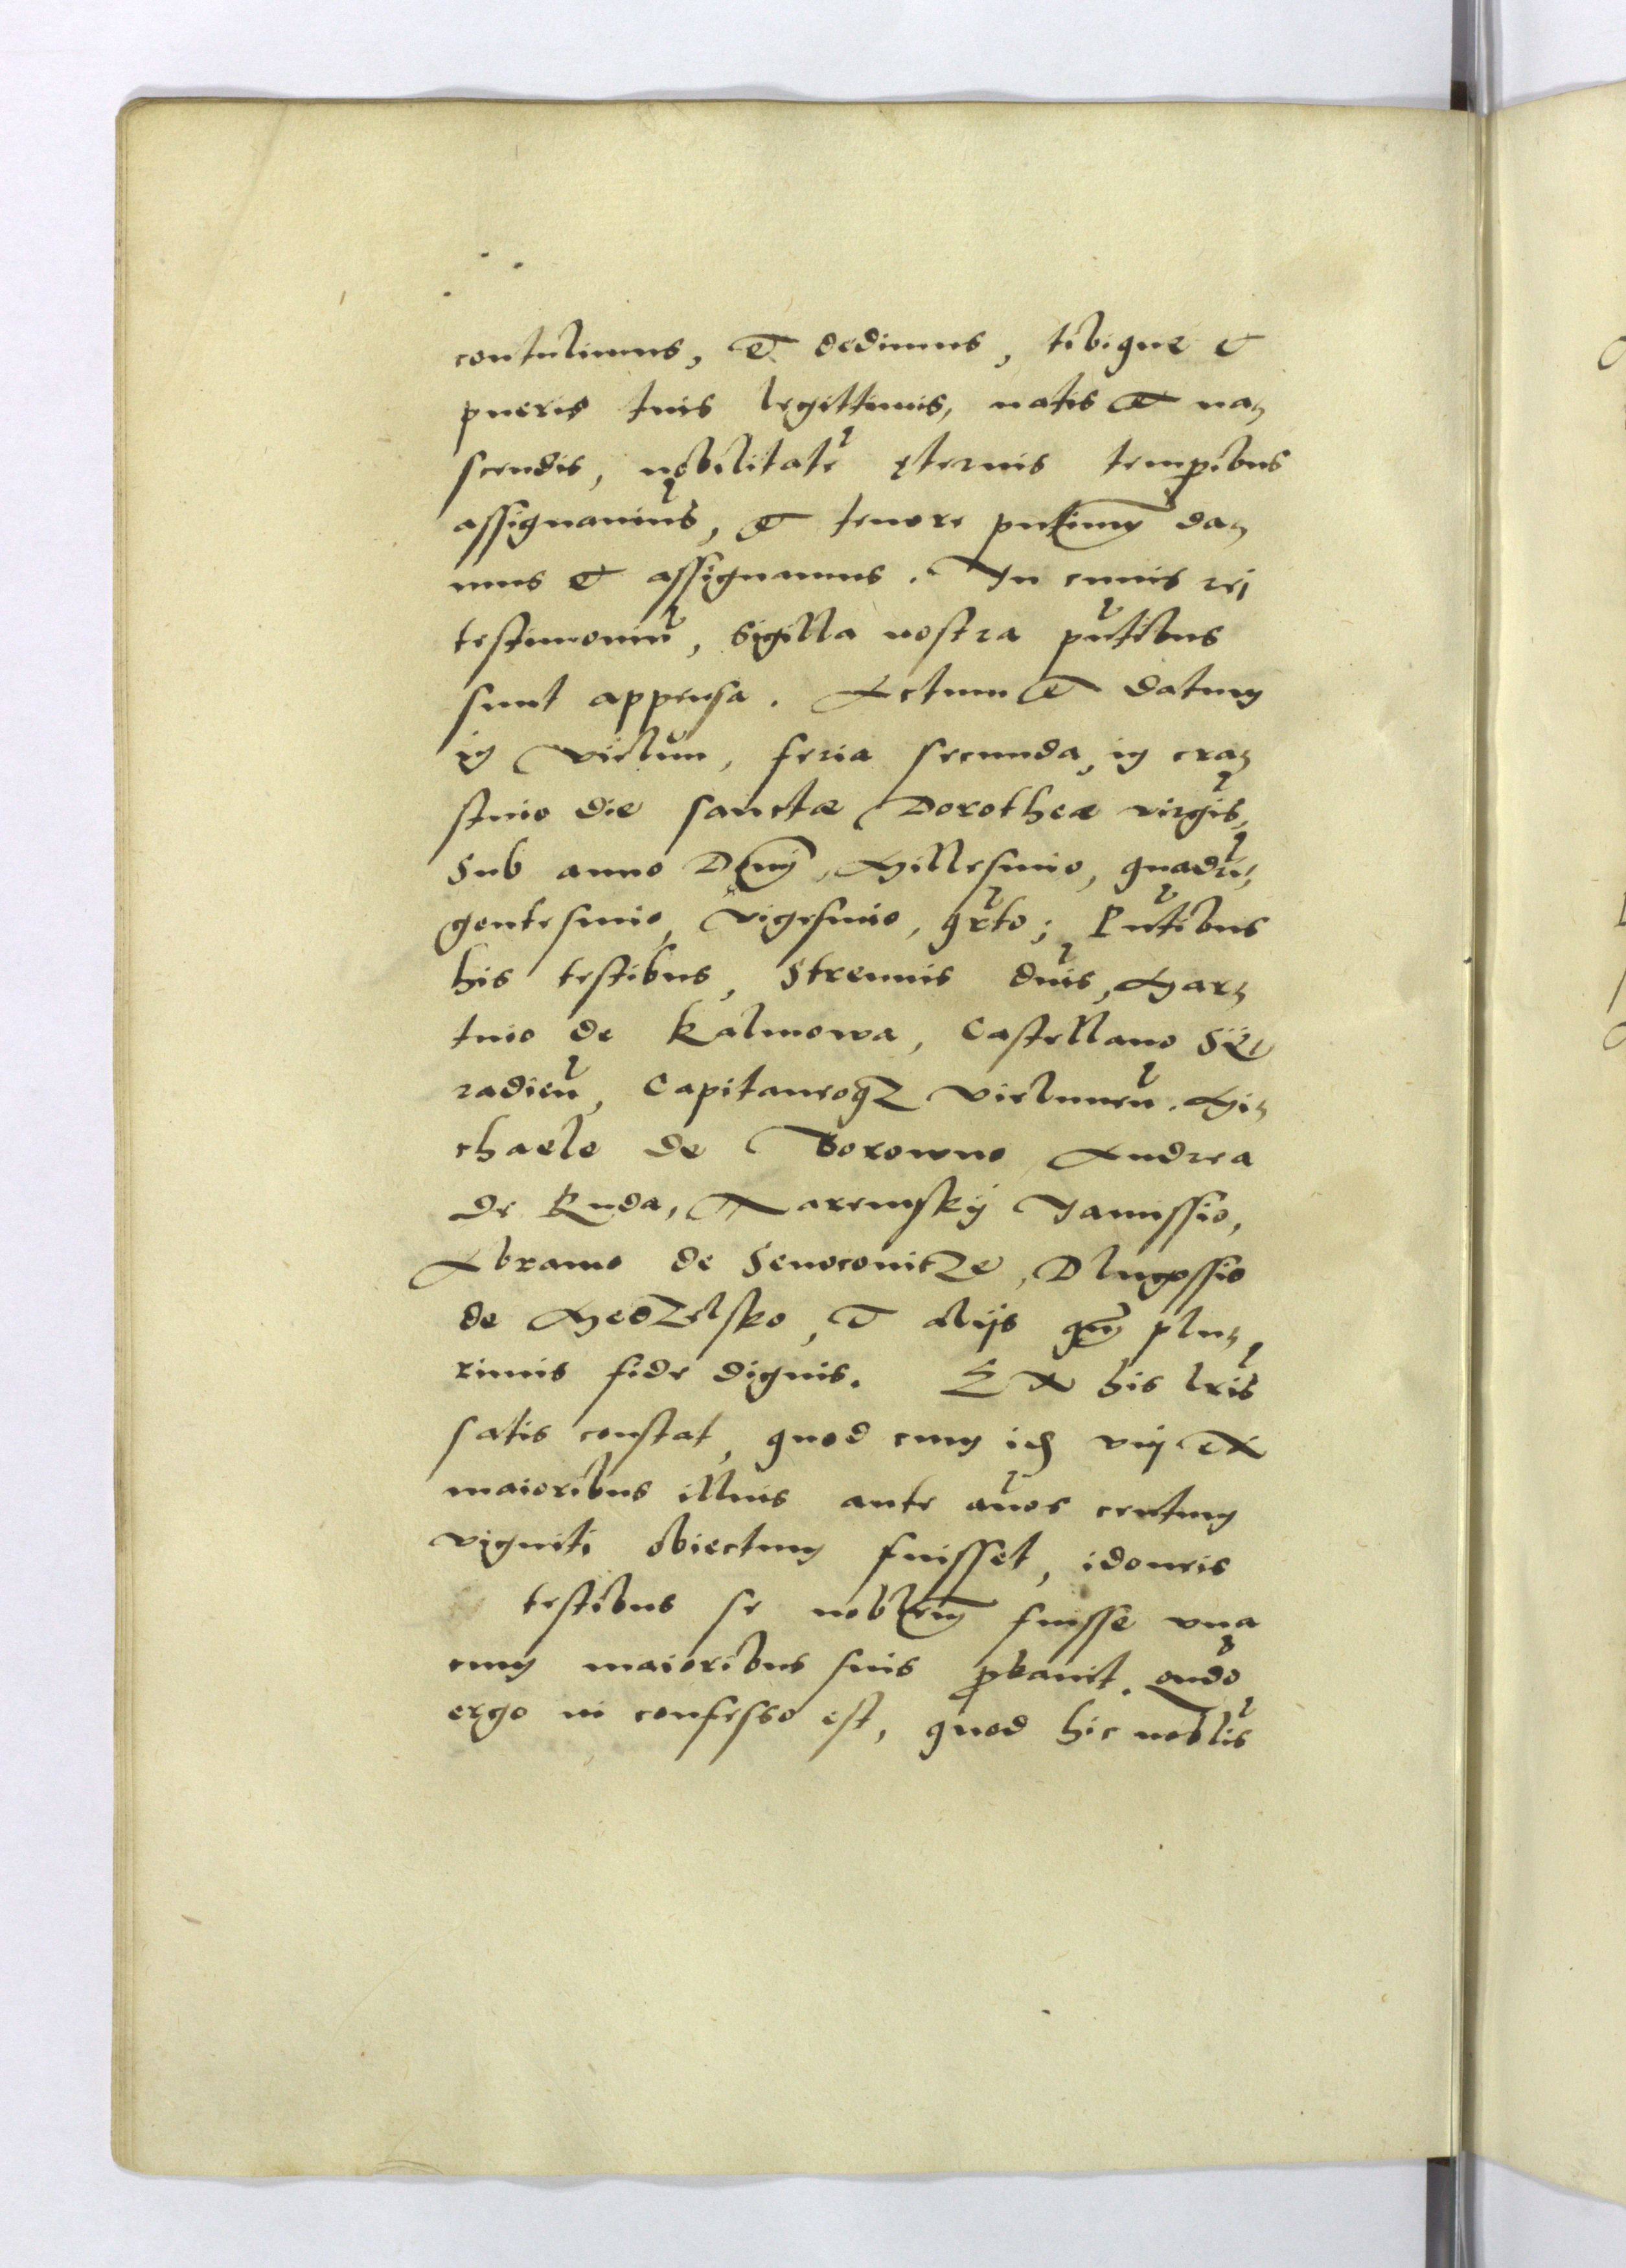 contulimus, et dedimus, tibique et
pueris tuis legittimis, natis et na⸗
scendis, nobilitatē ęternis tempibus
assignavimꝰ, et tenore pntium da⸗
mus et assignamus. In cuius rei
testimoniū, Sigilla nostra pn̄tibus
sunt appensa. Actum et datum
in Vielun, feria secunda, in cra⸗
stino die sanctæ Dorotheæ virgīs,
Sub anno Dnī, Millesimo, quadrī⸗
gentesimo, Vigesimo, qr̄to; Pn̄tibus
his testibus, Strenuis dn̄is, Mar⸗
tino de Kalinowa, Castellano Sÿ
radień, Capitaneoqꝫ Vieluneń. Mi⸗
chaele de Borowno Andrea
de Ruda, Xaremskÿ Janussio,
Abramo de Senoconitze, Dlugossio
de Medzelsko, et alijs qm̄ plu⸗
rimis fide dignis. Ex his lrīs
satis constat, quod cum id vni ex
maioribus illius ante an̄os centum
viginti obiectum fuisset, idoneis
testibus se noblem fuisse vna
cum maioribus suis ꝓbauit. Qn̄do
ergo in confesso est, quod hic noblīs